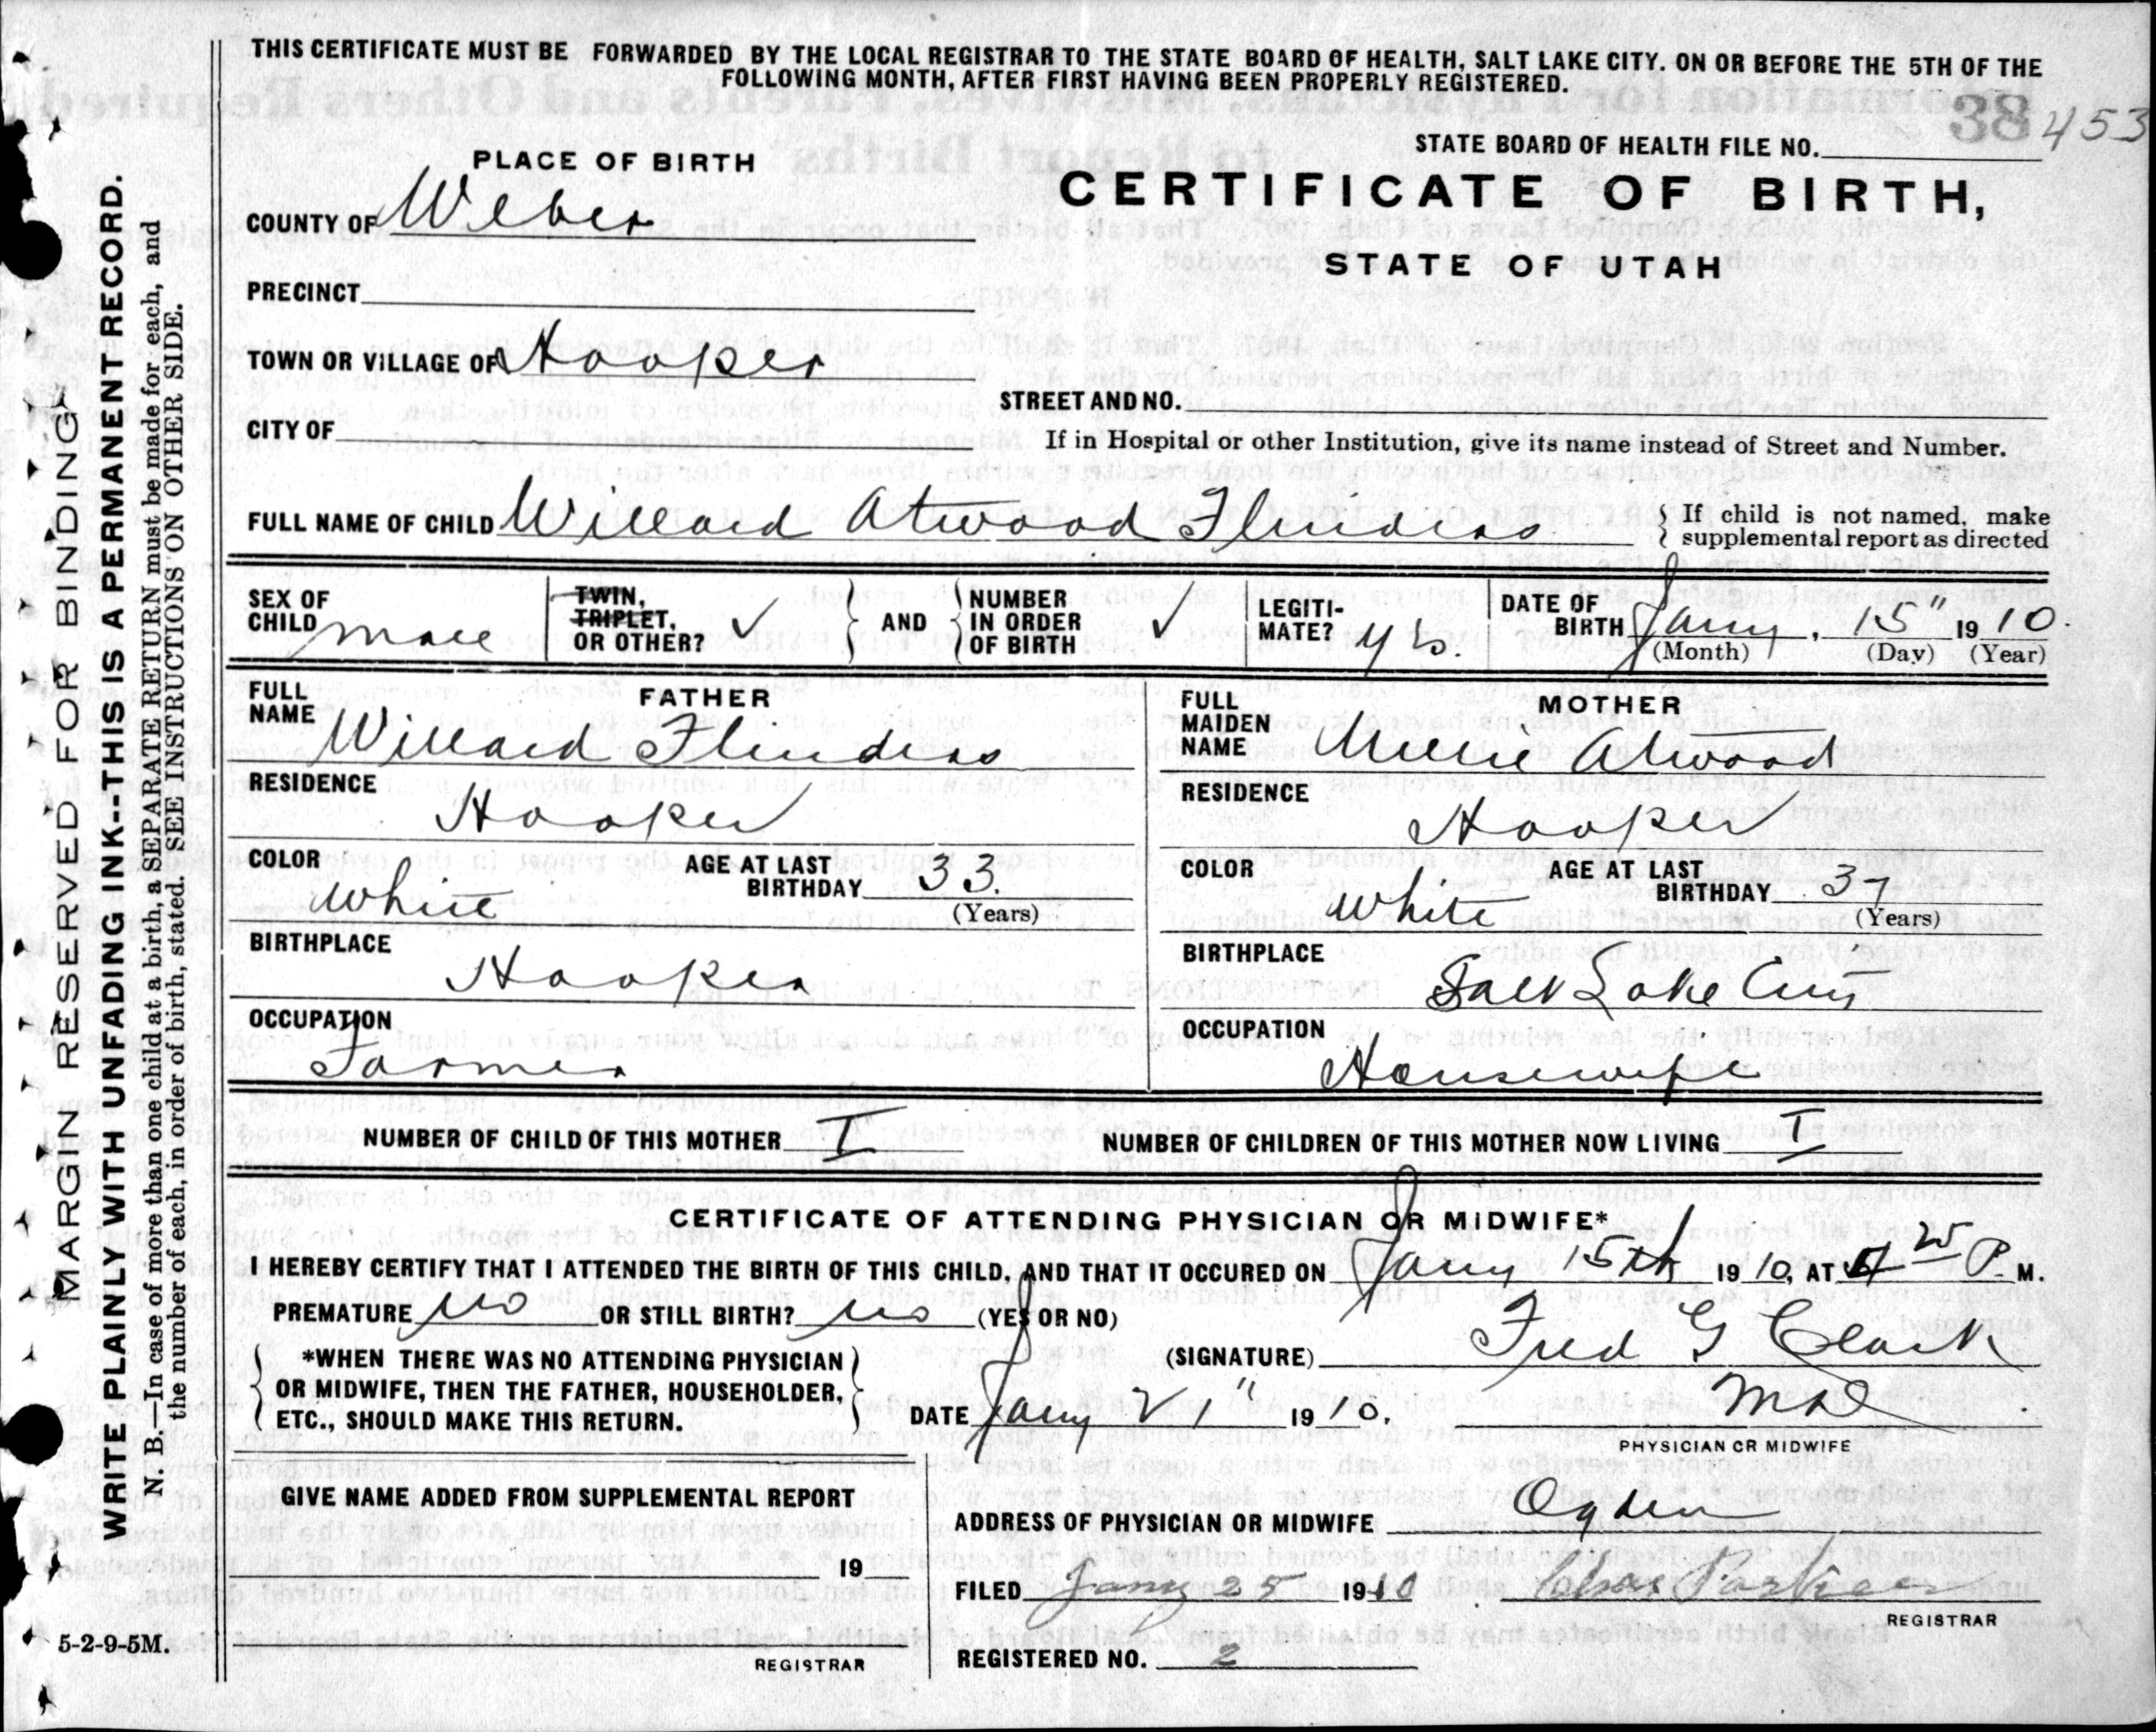 THIS CERTIFICATE MUST BE FORWARDED BY THE LOCAL REGISTRAR TO THE STATE BOARD OF HEALTH, SALT LAKE CITY. ON OR BEFORE THE 5TH OF THE
FOLLOWING MONTH, AFTER FIRST HAVING BEEN PROPERLY REGISTERED.
38 453
STATE BOARD OF HEALTH FILE NO.
PLACE OF BIRTH
CERTIFICATE OF BIRTH,
COUNTY OF Weber
STATE OF UTAH
PRECINCT
TOWN OR VILLAGE OF Hooper
STREET AND NO.
CITY OF
If in Hospital or other Institution, give its name instead of Street and Number.
FULL NAME OF CHILD Willard Atwood Flinders
If child is not named, make
supplemental report as directed
SEX OF
CHILD male
TWIN,
TRIPLET,
OR OTHER? ✓
AND
NUMBER
IN ORDER
OF BIRTH ✓
LEGITI-
MATE? yes.
DATE OF
BIRTH Jany. 15" 1910.
(Month) (Day) (Year)
FATHER
FULL
NAME Willard Flinders
RESIDENCE
Hooper
COLOR
White
AGE AT LAST
BIRTHDAY 33.
(Years)
BIRTHPLACE
Hooper
OCCUPATION
Farmer
MOTHER
FULL
MAIDEN
NAME Atwood
RESIDENCE
Hooper
COLOR
White
AGE AT LAST
BIRTHDAY 37
(Years)
BIRTHPLACE
Salt Lake City
OCCUPATION
Housewife
NUMBER OF CHILD OF THIS MOTHER I
NUMBER OF CHILDREN OF THIS MOTHER NOW LIVING I
CERTIFICATE OF ATTENDING PHYSICIAN OR MIDWIFE*
I HEREBY CERTIFY THAT I ATTENDED THE BIRTH OF THIS CHILD, AND THAT IT OCCURED ON Jany 15th 1910, AT P. M.
PREMATURE no OR STILL BIRTH? no (YES OR NO)
*WHEN THERE WAS NO ATTENDING PHYSICIAN
OR MIDWIFE, THEN THE FATHER, HOUSEHOLDER,
ETC., SHOULD MAKE THIS RETURN.
(SIGNATURE) Fred G Clark
MD
DATE Jany 21" 1910.
PHYSICIAN OR MIDWIFE
GIVE NAME ADDED FROM SUPPLEMENTAL REPORT
19
REGISTRAR
ADDRESS OF PHYSICIAN OR MIDWIFE Ogden
FILED Jany 25 1910 Chas Parker
REGISTRAR
REGISTERED NO. 2
MARGIN RESERVED FOR BINDING
WRITE PLAINLY WITH UNFADING INK--THIS IS A PERMANENT RECORD.
N. B.—In case of more than one child at a birth, a SEPARATE RETURN must be made for each, and
the number of each, in order of birth, stated. SEE INSTRUCTIONS ON OTHER SIDE.
5-2-9-5M.